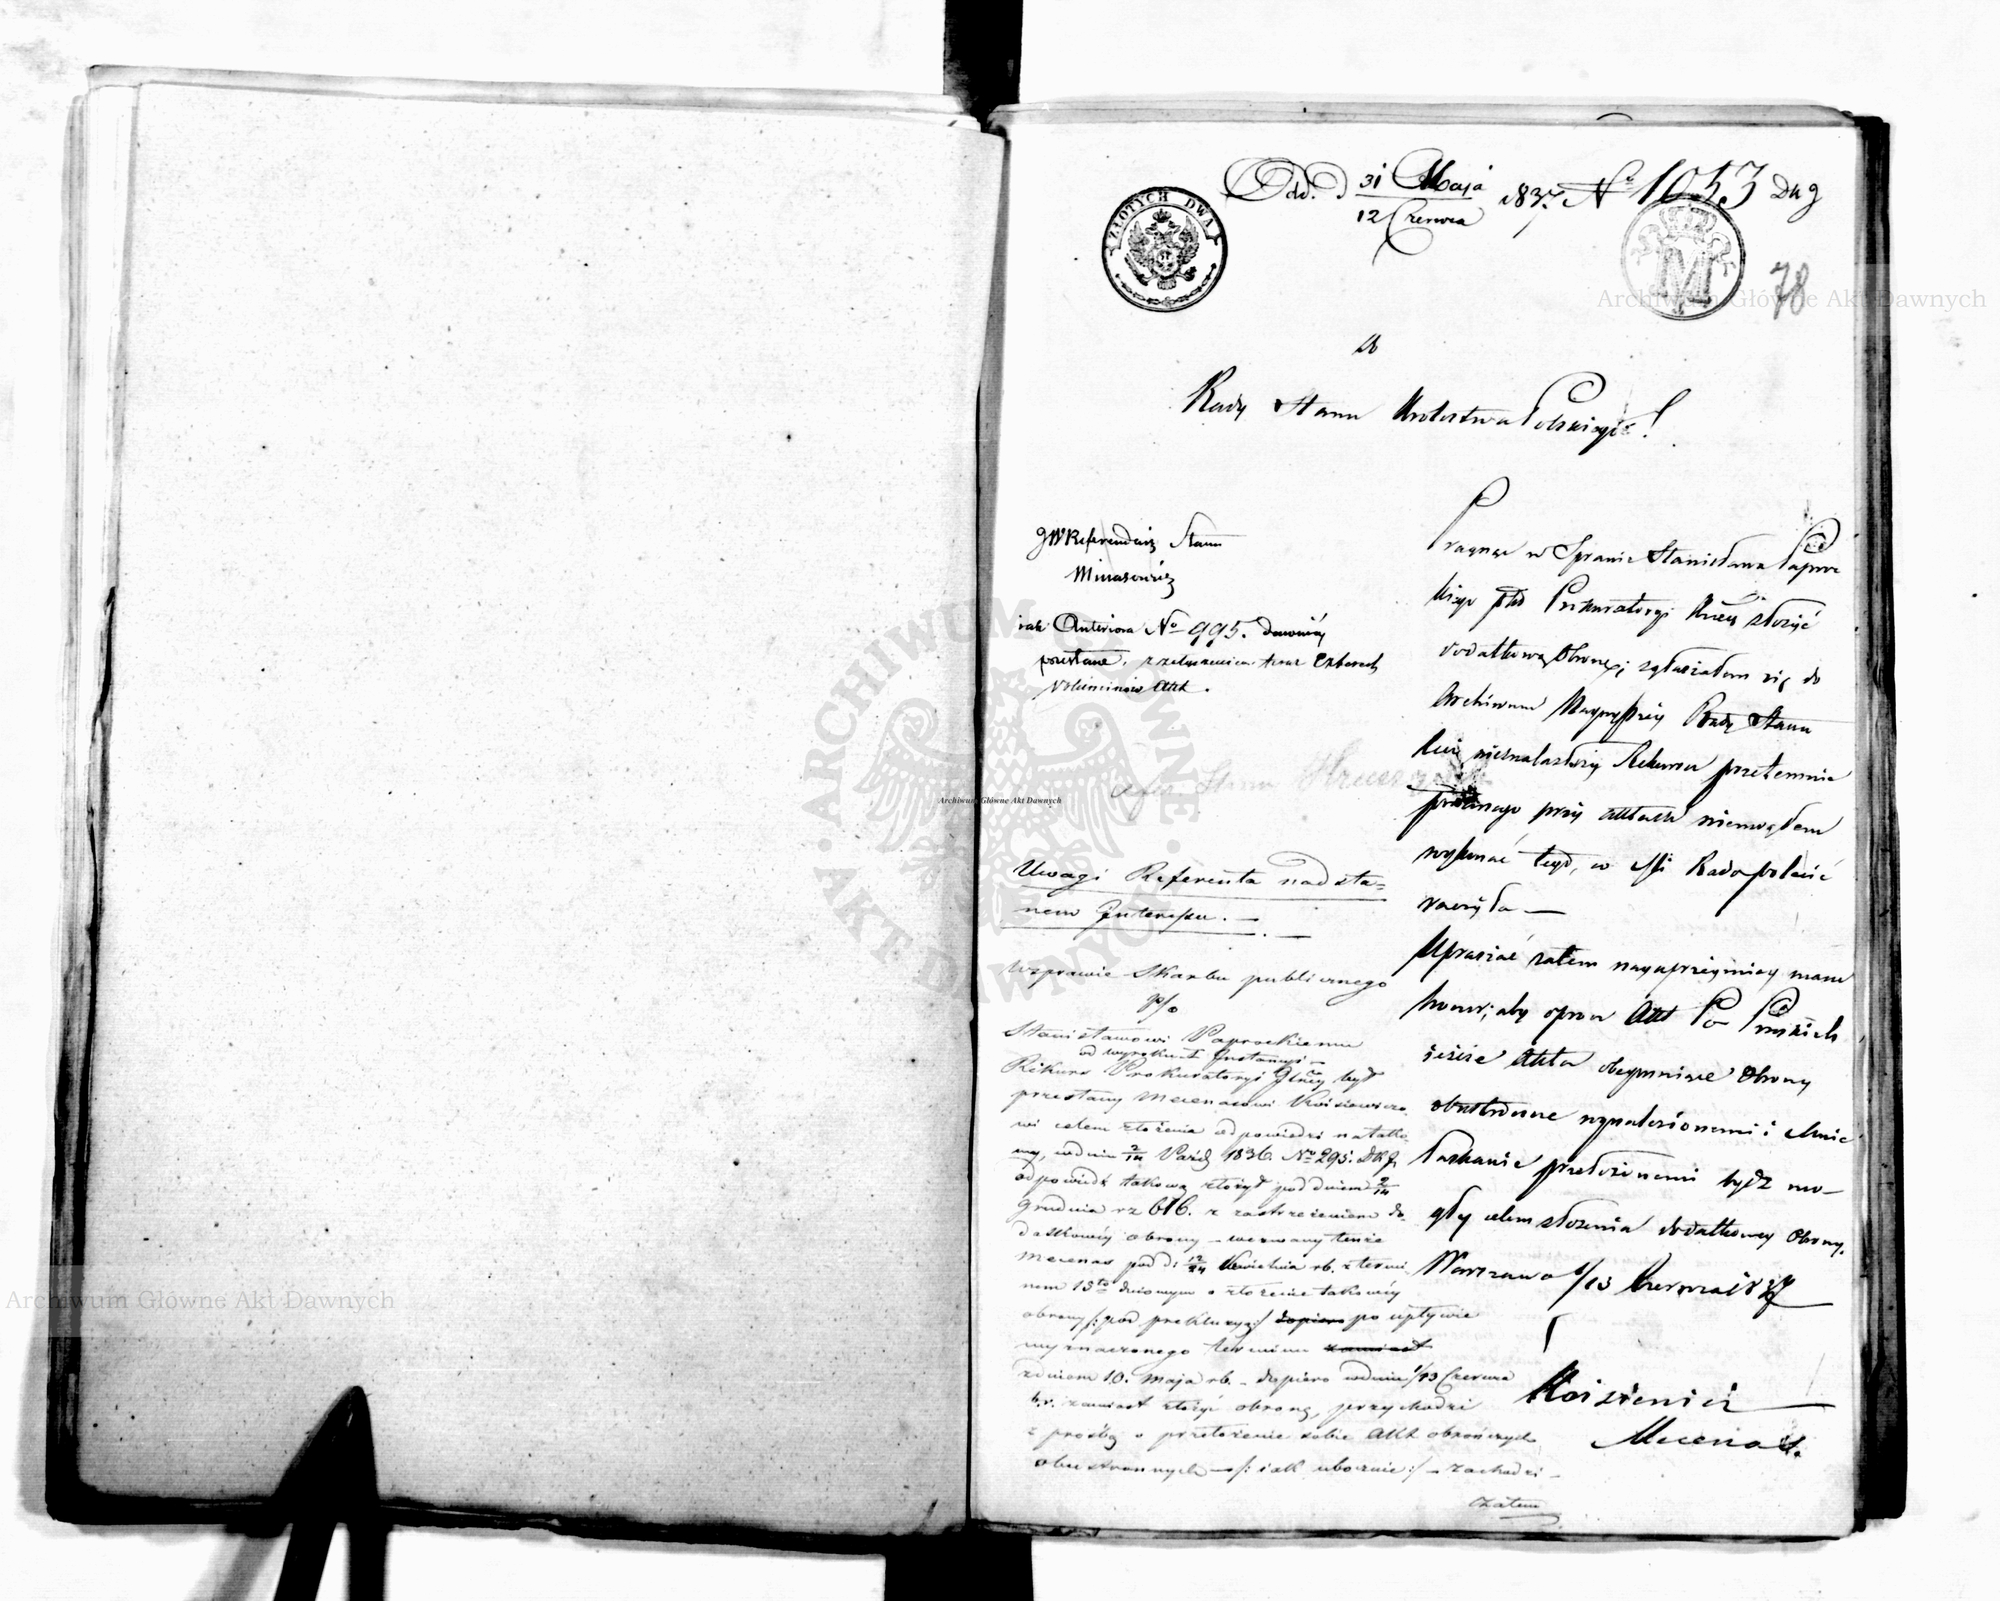 Odd. d 31 Maja / 12 Czerwca 1837. No 1053 Dug
ZŁOTYCH DWA
M
78
do
Rady Stanu Królestwa Polskiego!
JW Referendarz Stanu
Minasowicz
iak Anteriora No 995. dawniey
przesłane, z załączeniem teraz Czterech
Voluminów Akt.
Uwagi Referenta nad sta=
nem Interessu. —
W sprawie Skarbu publicznego
p/o
Stanisławowi Paprockiemu
od wyroku I Instancyi —
Rekurs Prokuratoryi Glney był
przesłany Mecenasowi Koisiewiczo
wi celem złożenia odpowiedzi na tako
wy, w dniu 2/14 Paźdz 1836 No 295. DKg
odpowiedź takową złożył pod dniem 2/14
Grudnia rz 616. z zastrzeżeniem do=
datkowéy obrony — wezwany tenże
Mecenas pod d: 12/24 Kwietnia rb. z termi
nem 15to dniowym o złożenie takowéy
obrony /: pod prekluzyą :/ dopiero po upływie
wyznaczonego terminu zamiast
z dniem 10. Maja rb. — dopiero w dniu 1/13 Czerwca
b.r. zamiast złożyć obronę, przychodzi
z prośbą o przełożenie sobie Akt obrończych
obustronnych — /: iak ubocznie :/ — zachodzi —
zatem
Pragnąc w Sprawie Stanisława Paproc
kiego plko Prokuratoryi Krlew złożyć
dodatkową Obronę; zgłaszałem się do
Archiwum Nayw przy Rady Stanu
lecz nieznalazłszy Rekursu przezemnie
podanego przy aktach niemogłem
wykonać tego, co Mi Rada polecić
raczyła —
Upraszać zatem nayuprzeymiey mam
honor; aby oprócz Akt Po Pruskich
ieszcze Akta obeymuiące Obrony
obustronne wynalezionemi i Mnie
łaskawie przełożonemi bydź mo—
gły celem złożenia dodatkowey Obrony.
Warszawa 1/13 Czerwca 1837
Koisiewicz
Mecenas.
Archiwum Główne Akt Dawnych
Archiwum Główne Akt Dawnych
Archiwum Główne Akt Dawnych
ARCHIWUM GŁÓWNE · AKT DAWNYCH ·